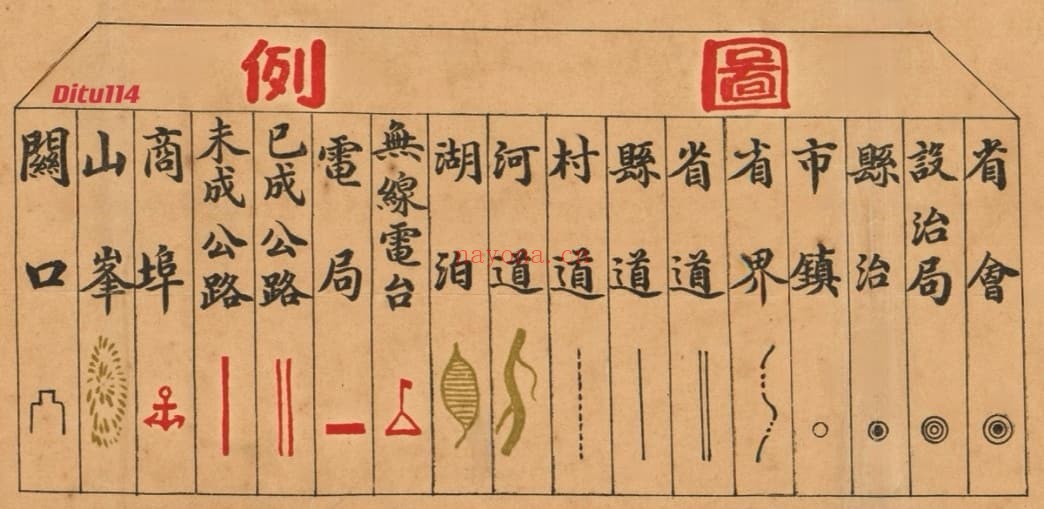 圖例
Ditu114
省會
設治局
縣治
市鎮
省界
省道
縣道
村道
河道
湖泊
無線電台
電局
已成公路
未成公路
商埠
山峯
關口
nayona.cn